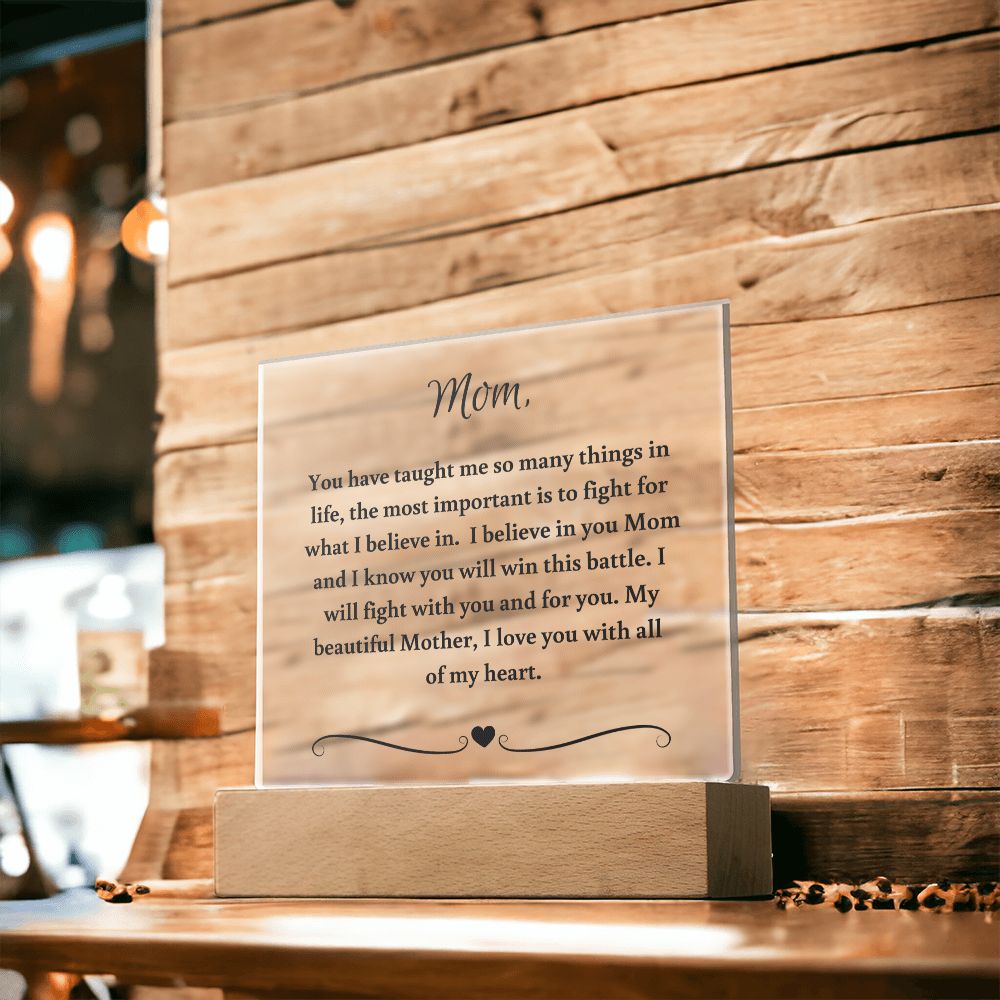 Mom,
You have taught me so many things in
life, the most important is to fight for
what I believe in.  I believe in you Mom
and I know you will win this battle. I
will fight with you and for you. My
beautiful Mother, I love you with all
of my heart.